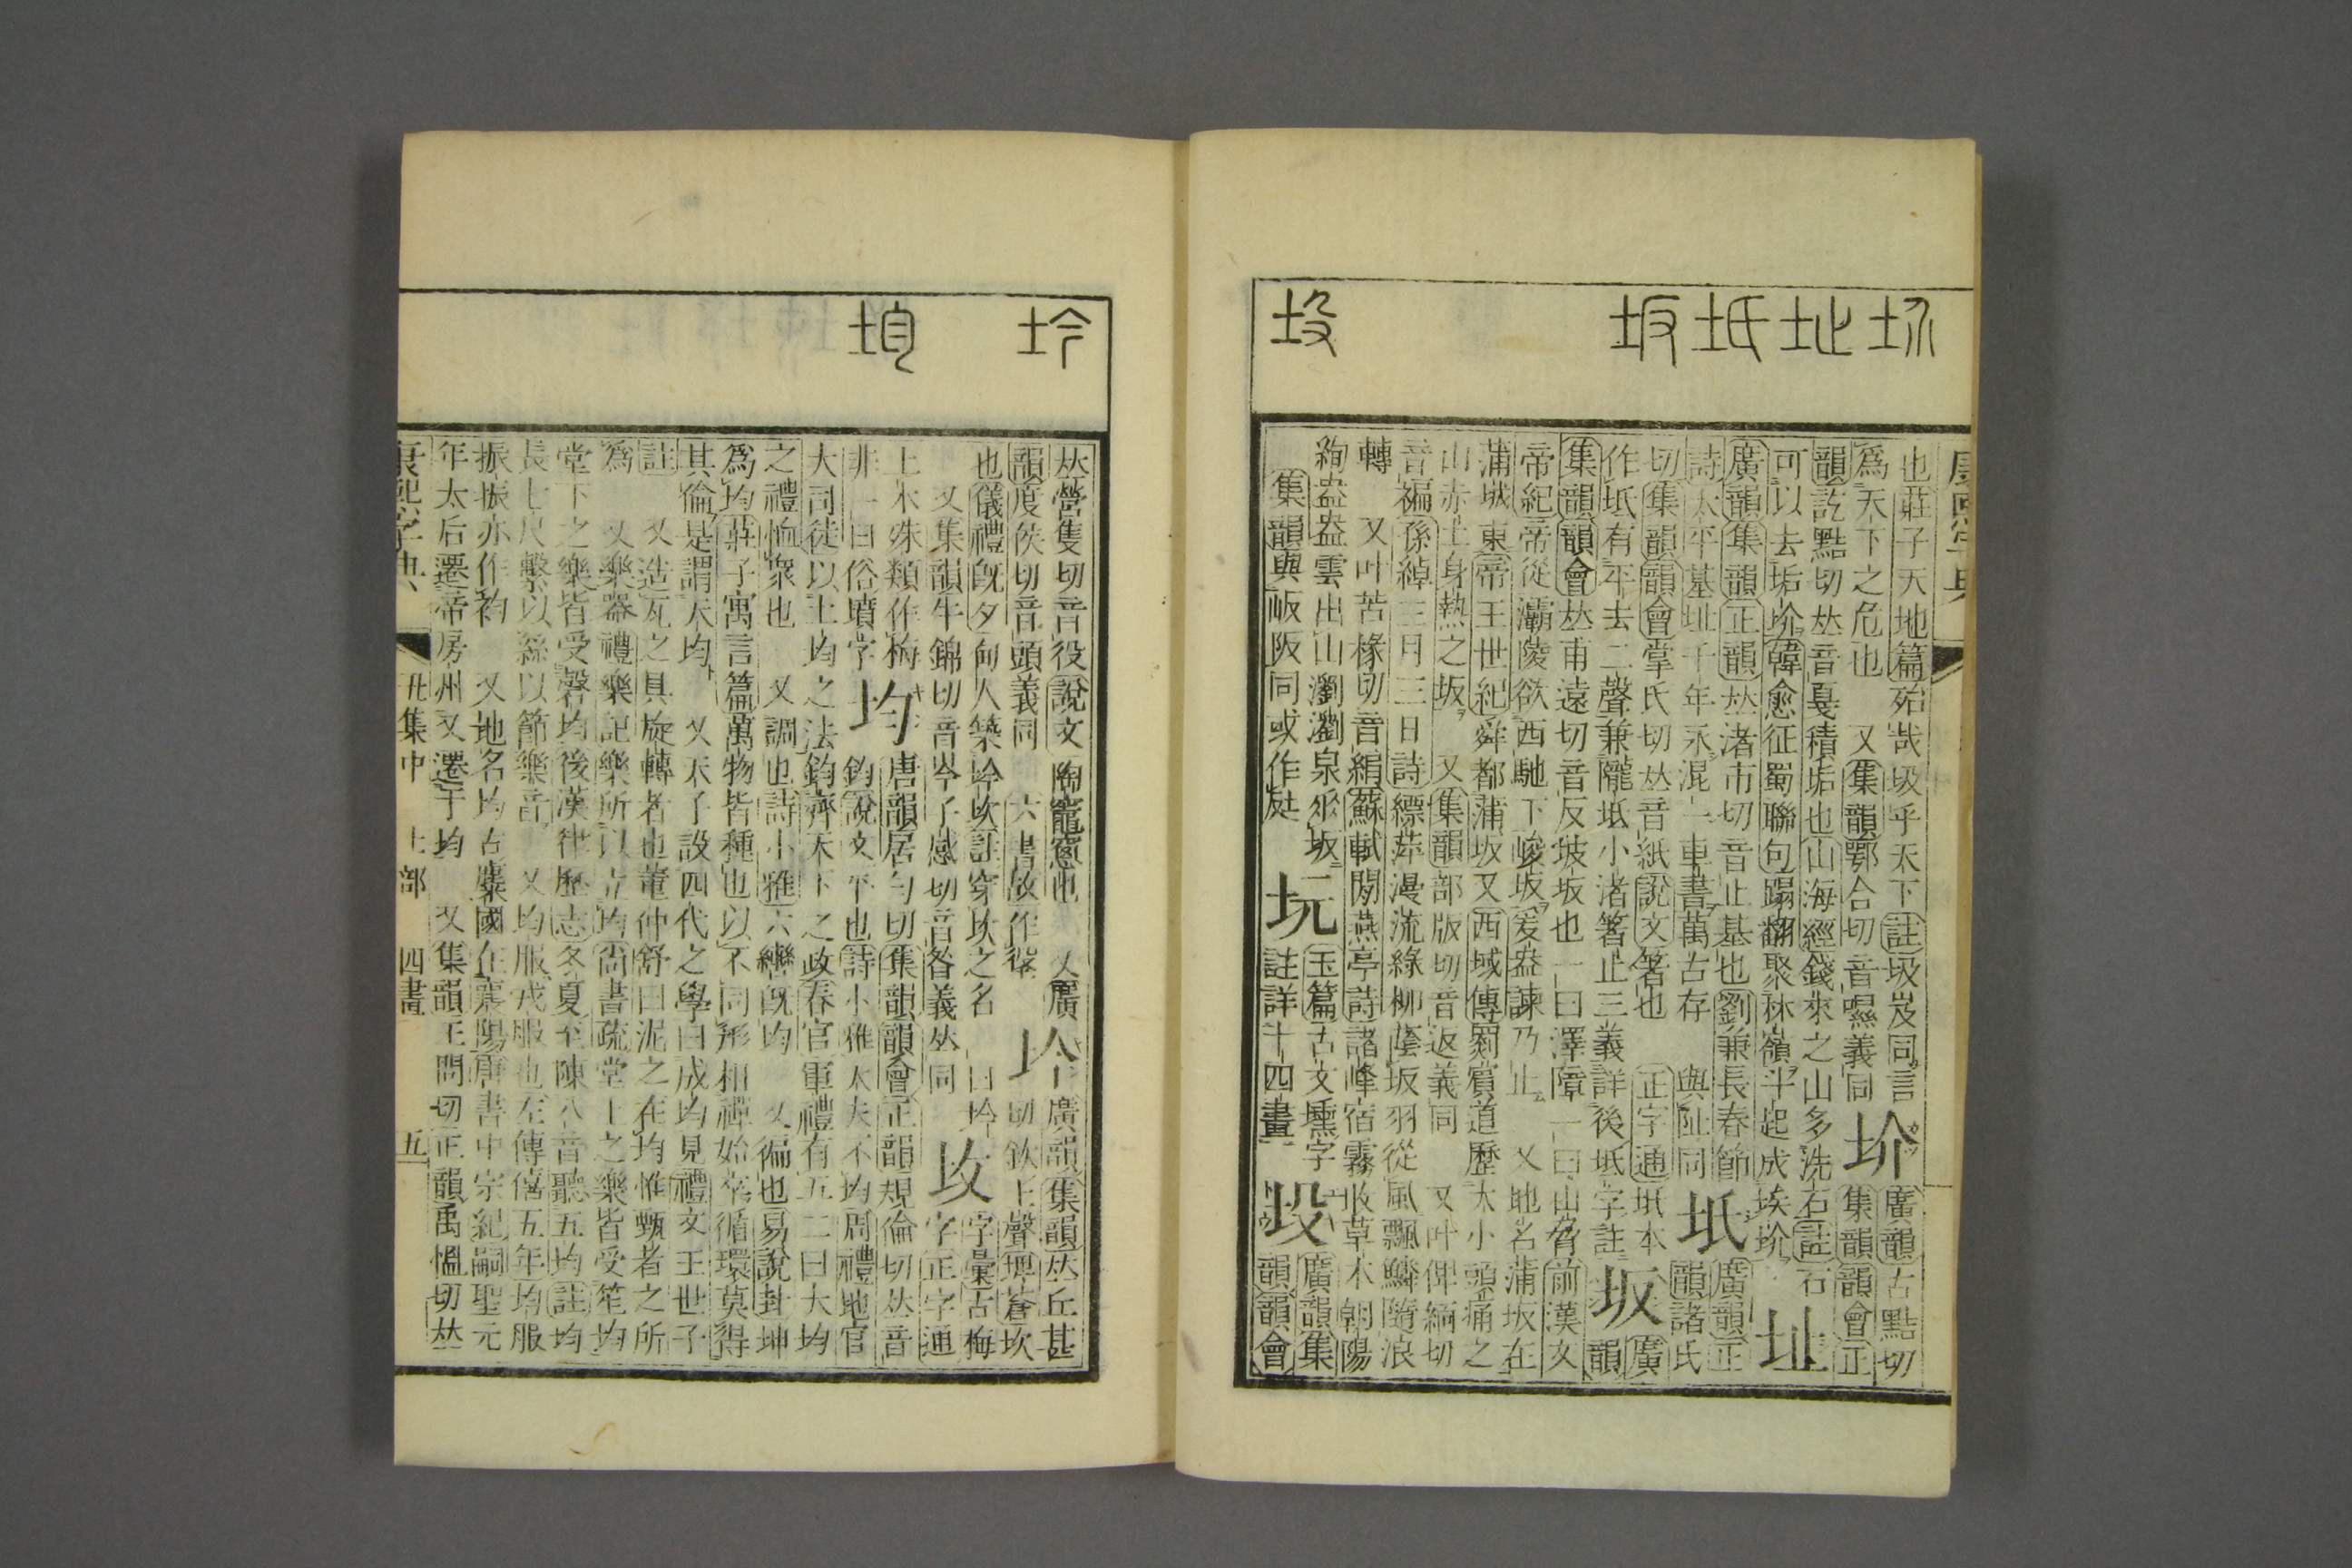 坋址坻坂 坄
康熙字典
也莊子天地篇殆哉圾乎天下註圾岌同言
爲天下之危也 又集韻鄂合切音㬤義同 坋 廣韻古黠切
集韻韻會正
韻訖黠切𠀤音戛積垢也山海經錢來之山多洗石註石
可以去垢圿韓愈征蜀聯句蹋翻聚林嶺斗起成埃圿 址
廣韻集韻正韻𠀤渚市切音止基也劉兼長春節
詩太平基址千年永混一車書萬古存 與阯同 坻 廣韻正
韻諸氏
切集韻韻會掌氏切𠀤音紙說文箸也 正字通坻本
作坻有平去二聲兼隴坻小渚箸止三義詳後坻字註 坂 廣
韻
集韻韻會𠀤甫遠切音反坡坂也一曰澤障一曰山脅前漢文
帝紀帝從灞陵欲西馳下峻坂爰盎諫乃止 又地名蒲坂在
蒲城東帝王世紀舜都蒲坂又西域傳罽賓道歷大小頭痛之
山赤土身熱之坂 又集韻部版切音返義同 又叶俾緬切
音褊孫綽三月三日詩縹萍漫流綠柳蔭坂羽從風飄鱗隨浪
轉 又叶苦椽切音絹蘇軾閒燕亭詩諸峰宿霧收草木朝陽
絢盎盎雲出山瀏瀏泉釆坂
集韻與岅阪同或作𡊟 坃 玉篇古文壎字
註詳十四畫 坄 廣韻集
韻韻會
坅 均
𠀤營隻切音役說文陶竈窻也 又廣
韻度侯切音頭義同 六書故作𡑌 坅 廣韻集韻𠀤丘甚
切欽上聲埤蒼坎
也儀禮旣夕甸人築坅坎註穿坎之名 曰坅
又集韻牛錦切音吟子感切音昝義𠀤同 坆 字彙古梅
字正字通
上木殊類作梅
非一曰俗墳字 均 唐韻居勻切集韻韻會正韻規倫切𠀤音
鈞說文平也詩小雅大夫不均周禮地官
大司徒以土均之法鈞齊天下之政春官軍禮有五二曰大均
之禮恤衆也 又調也詩小雅六轡旣均 又徧也易說卦坤
爲均莊子寓言篇萬物皆種也以不同形相禪始卒循環莫得
其倫是謂天均 又天子設四代之學曰成均見禮文王世子
註 又造瓦之具旋轉者也董仲舒曰泥之在均惟甄者之所
爲 又樂器禮樂記樂所以立均尚書疏堂上之樂皆受笙均
堂下之樂皆受磬均後漢律歷志冬夏至陳八音聽五均註均
長七尺繫以絲以節樂音 又均服戎服也左傳僖五年均服
振振亦作袀 又地名均古麋國在襄陽唐書中宗紀嗣聖元
年太后遷帝房州又遷于均 又集韻王問切正韻禹慍切𠀤
康熙字典 丑集中 土部 四畫 五